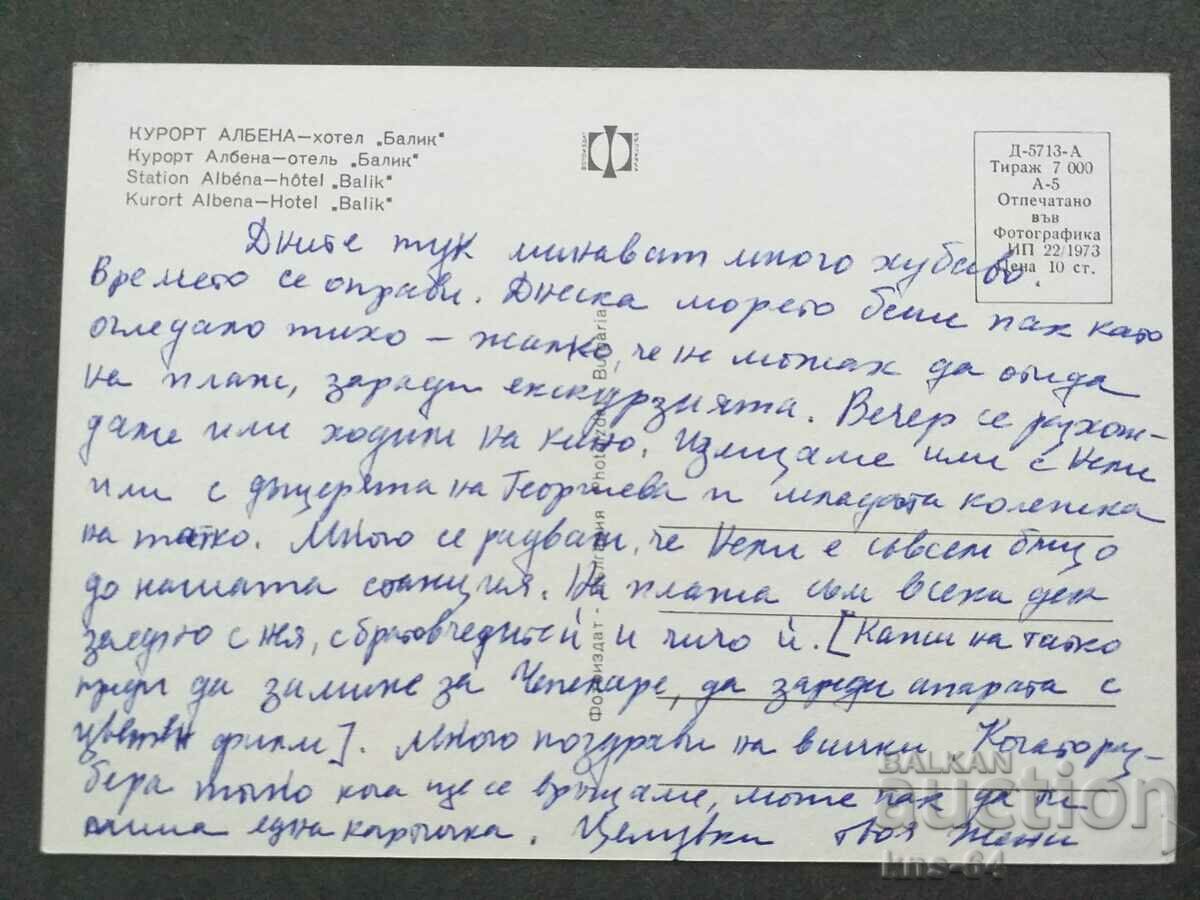 КУРОРТ АЛБЕНА—хотел „Балик"
Курорт Албена—отель „Балик"
Station Albéna—hôtel „Balik"
Kurort Albena—Hotel „Balik"
Д-5713-А
Тираж 7 000
А-5
Отпечатано
във
Фотографика
ИП 22/1973
Цена 10 ст.
Дните тук минават много хубаво.
Времето се оправи. Днеска морето беше пак като
огледало тихо – жалко, че не можах да отида
на плаж, заради екскурзията. Вечер се разхож-
даме или ходим на кино. Излизаме или с Нели
или с дъщерята на Георгиева и младата колежка
на татко. Много се радвам, че Нели е съвсем близо
до нашата станция. На плажа съм всеки ден
заедно с нея, с братовчедите ѝ и чичо ѝ. [Кажи на татко
преди да замине за Чепеларе, да зареди апарата с
цветен филм]. Много поздрави на всички. Когато раз-
бера точно кога ще се връщаме, може пак да ти
пиша една картичка. Целувки твоя Жени
Фотоиздат - България Photoizdat - Bulgaria
BALKAN
auction
kns-64